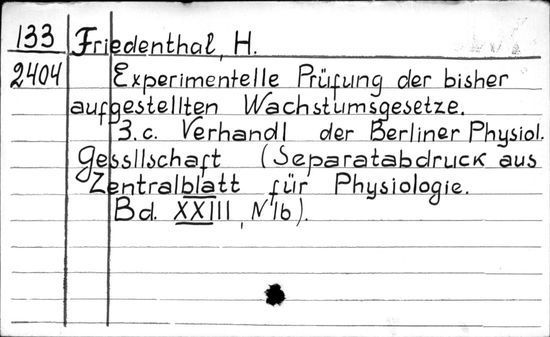 133 Friedenthal, H.
2404 Experimentelle Prüfung der bisher
aufgestellten Wachstumsgesetze.
3.c. Verhandl der Berliner Physiol.
Gessllschaft (Separatabdruck aus
Zentralblatt für Physiologie.
Bd. XXIII, N1b).